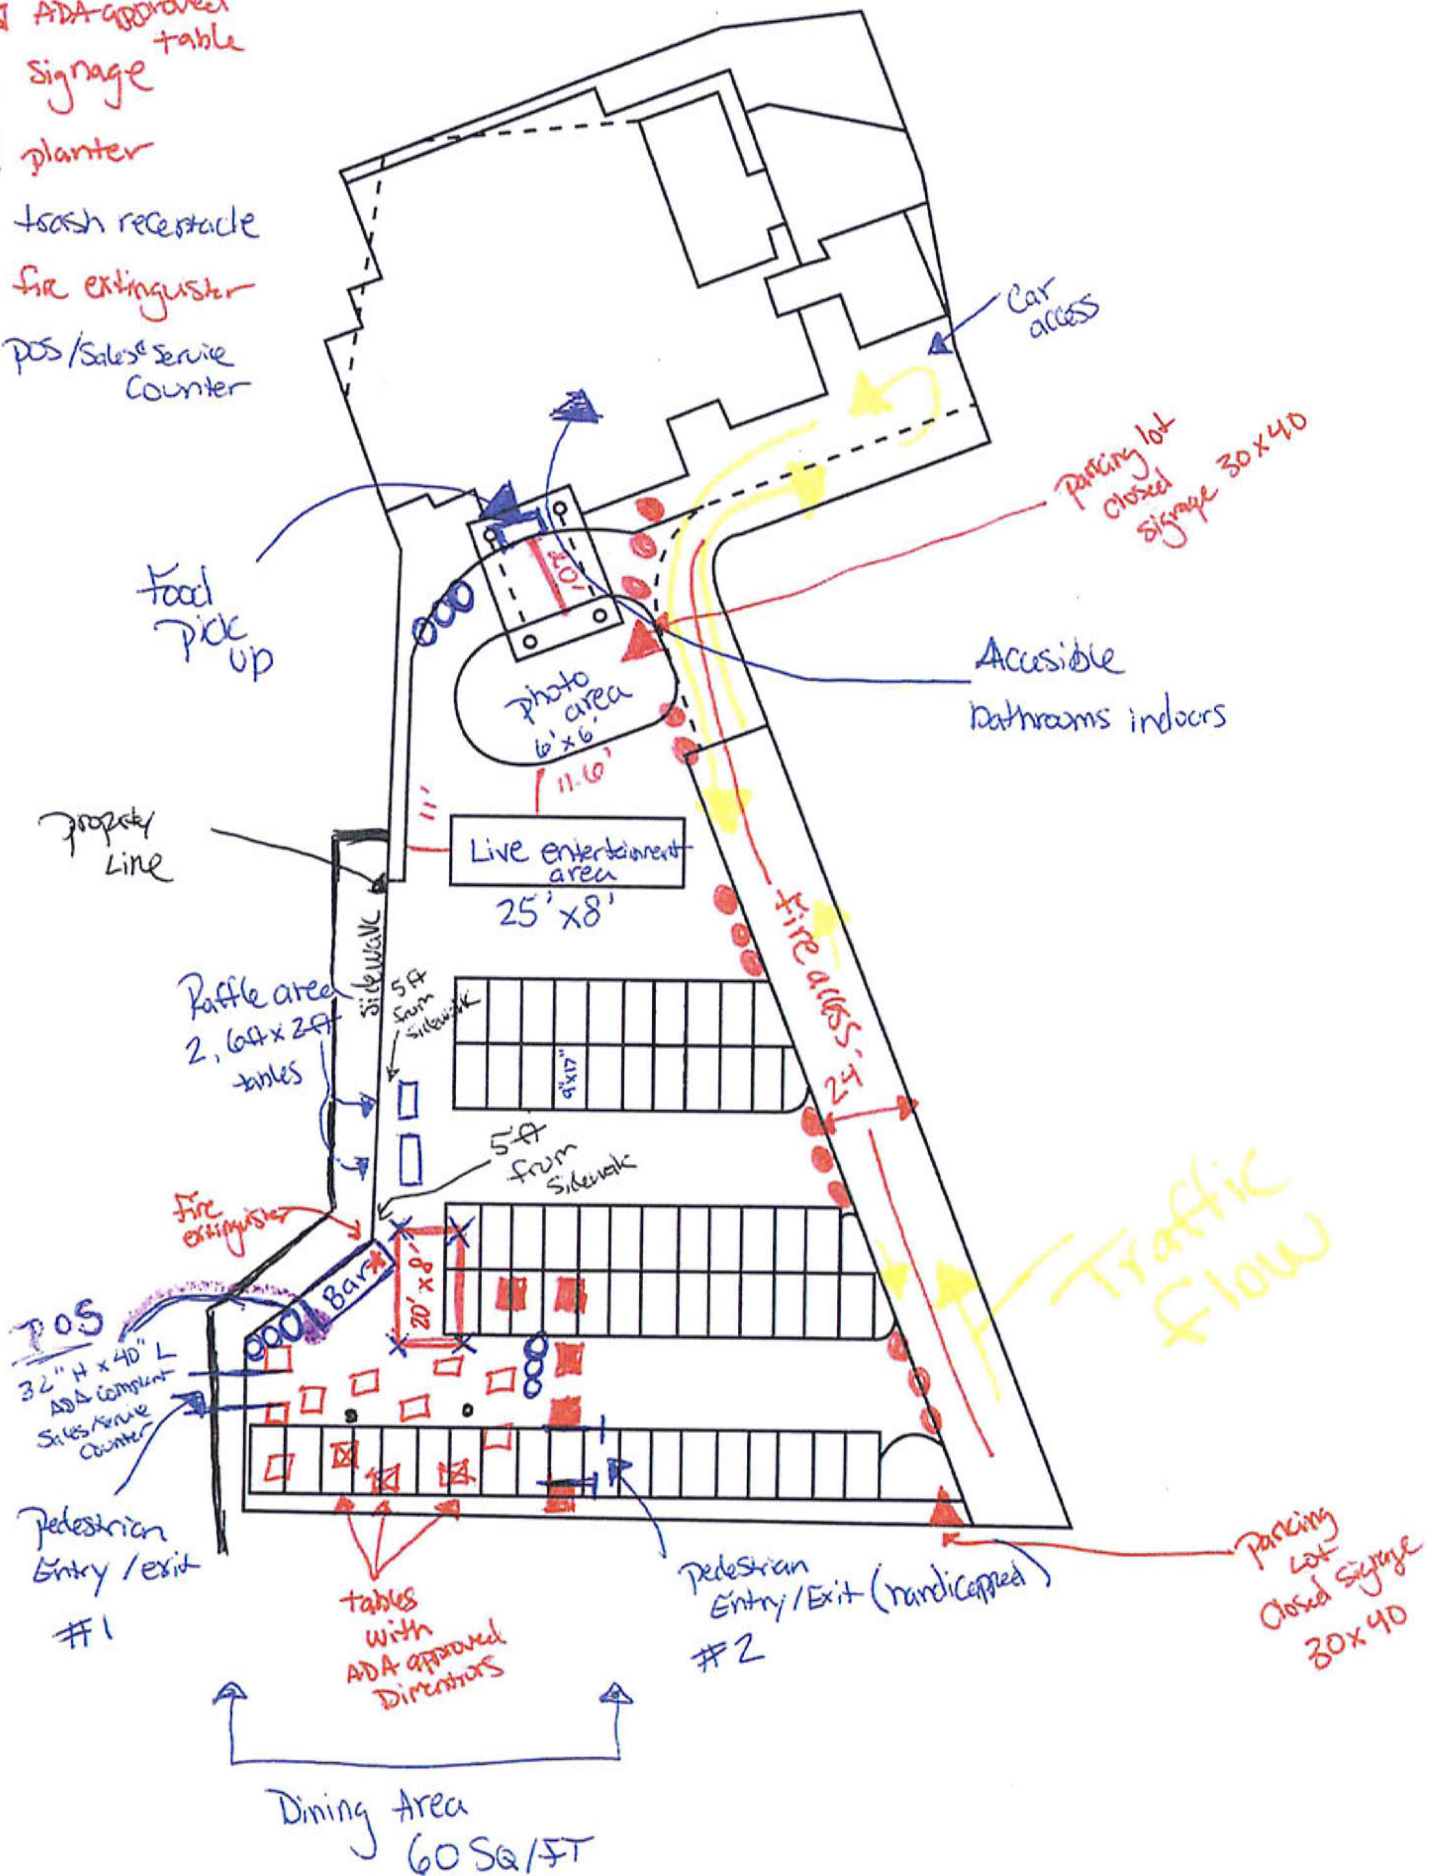 ADA approved
table
signage
planter
trash receptacle
fire extinguisher
POS/Sales & Service
Counter
Car
access
parking lot
closed
signage 30x40
20'
Food
pick
up
Accesible
bathrooms indoors
photo
area
6'x6'
11.6'
11'
property
Line
Live entertainment
area
25'x8'
sidewalk
fire access,
24'
Raffle area
2, 6ft x 2ft
tables
5ft
from
sidewalk
9"x17"
5ft
from
Sidewalk
fire
extinguisher
Bar
20' x 8'
Traffic
flow
POS
32"H x 40"L
ADA compliant
Sales/service
Counter
Pedestrian
Entry/exit
#1
tables
with
ADA approved
Dimensions
Pedestrian
Entry/Exit (handicapped)
#2
Parking
Lot
Closed signage
30x40
Dining Area
60 SQ/FT